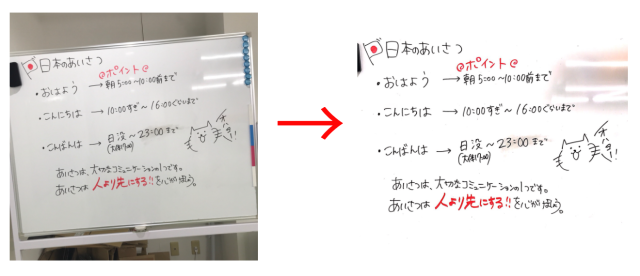 日本のあいさつ
@ポイント@
・おはよう → 朝5:00~10:00前まで
・こんにちは → 10:00すぎ~16:00ぐらいまで
・こんばんは → 日没~23:00まで
あいさつは、大切なコミュニケーションの1つです。
あいさつは人より先にする!!を心がけ
日本のあいさつ
@ポイント@
・おはよう → 朝5:00~10:00前まで
・こんにちは → 10:00すぎ~16:00ぐらいまで
・こんばんは → 日没~23:00まで
あいさつは、大切なコミュニケーションの1つです。
あいさつは人より先にする!!を心がけ